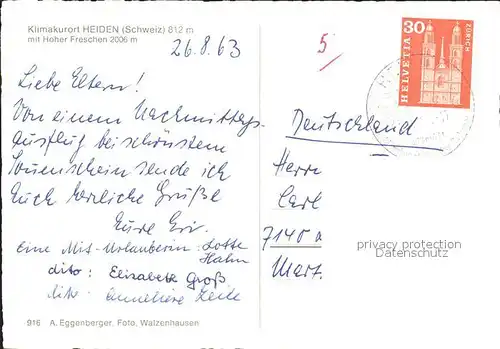 Klimakurort HEIDEN (Schweiz) 812 m
mit Hoher Freschen 2006 m
26.8.63
Liebe Eltern!
Von einem Nachmittags-
ausflug bei schönstem
Sonnenschein sende ich
Euch herzliche Grüße
Eure
Eine Mit-Urlauberin: Lotte
Hahn
dito: Elisabeth Groß
dito: Anneliese
916 A. Eggenberger, Foto, Walzenhausen
5
30
HELVETIA
ZÜRICH
Deutschland
Herrn
Carl
7140
privacy protection
Datenschutz